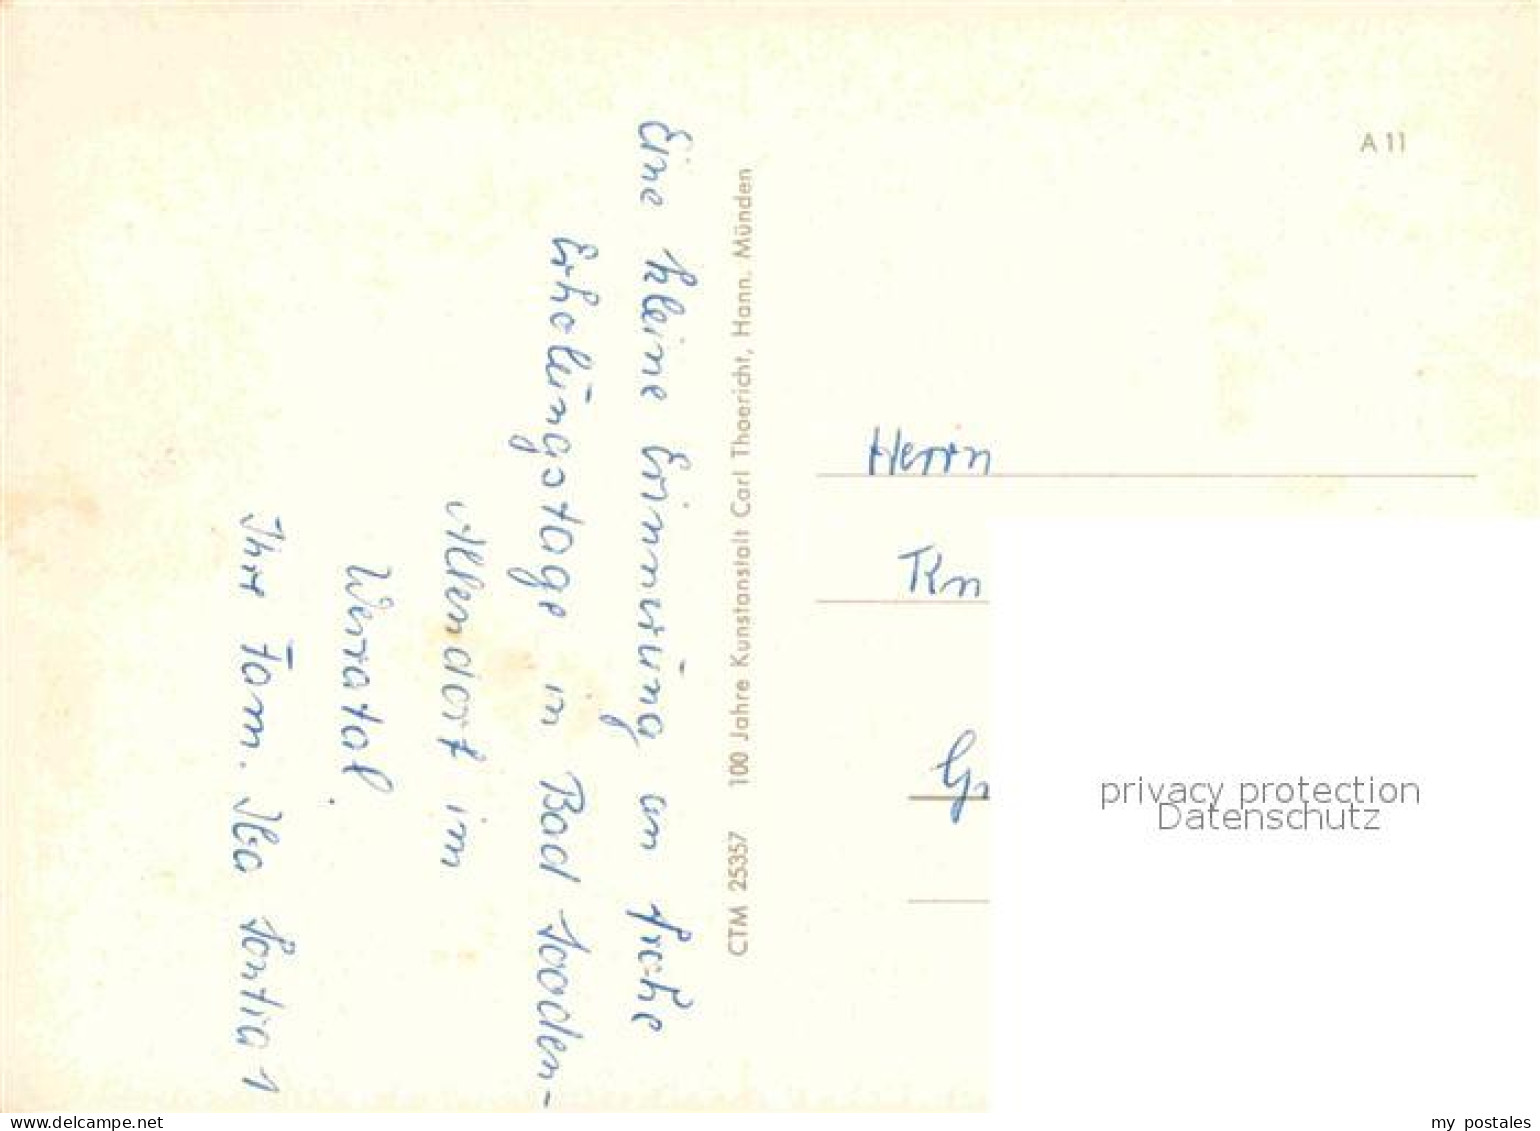 Eine kleine Erinnerung an frohe
Erholungstage in Bad Sooden-
Allendorf im
Werratal.
Ihre Fam. Iba Sontra 1
CTM 25357 100 Jahre Kunstanstalt Carl Thoericht, Hann. Münden
A 11
Herrn
privacy protection
Datenschutz
delcampe.net
my_postales